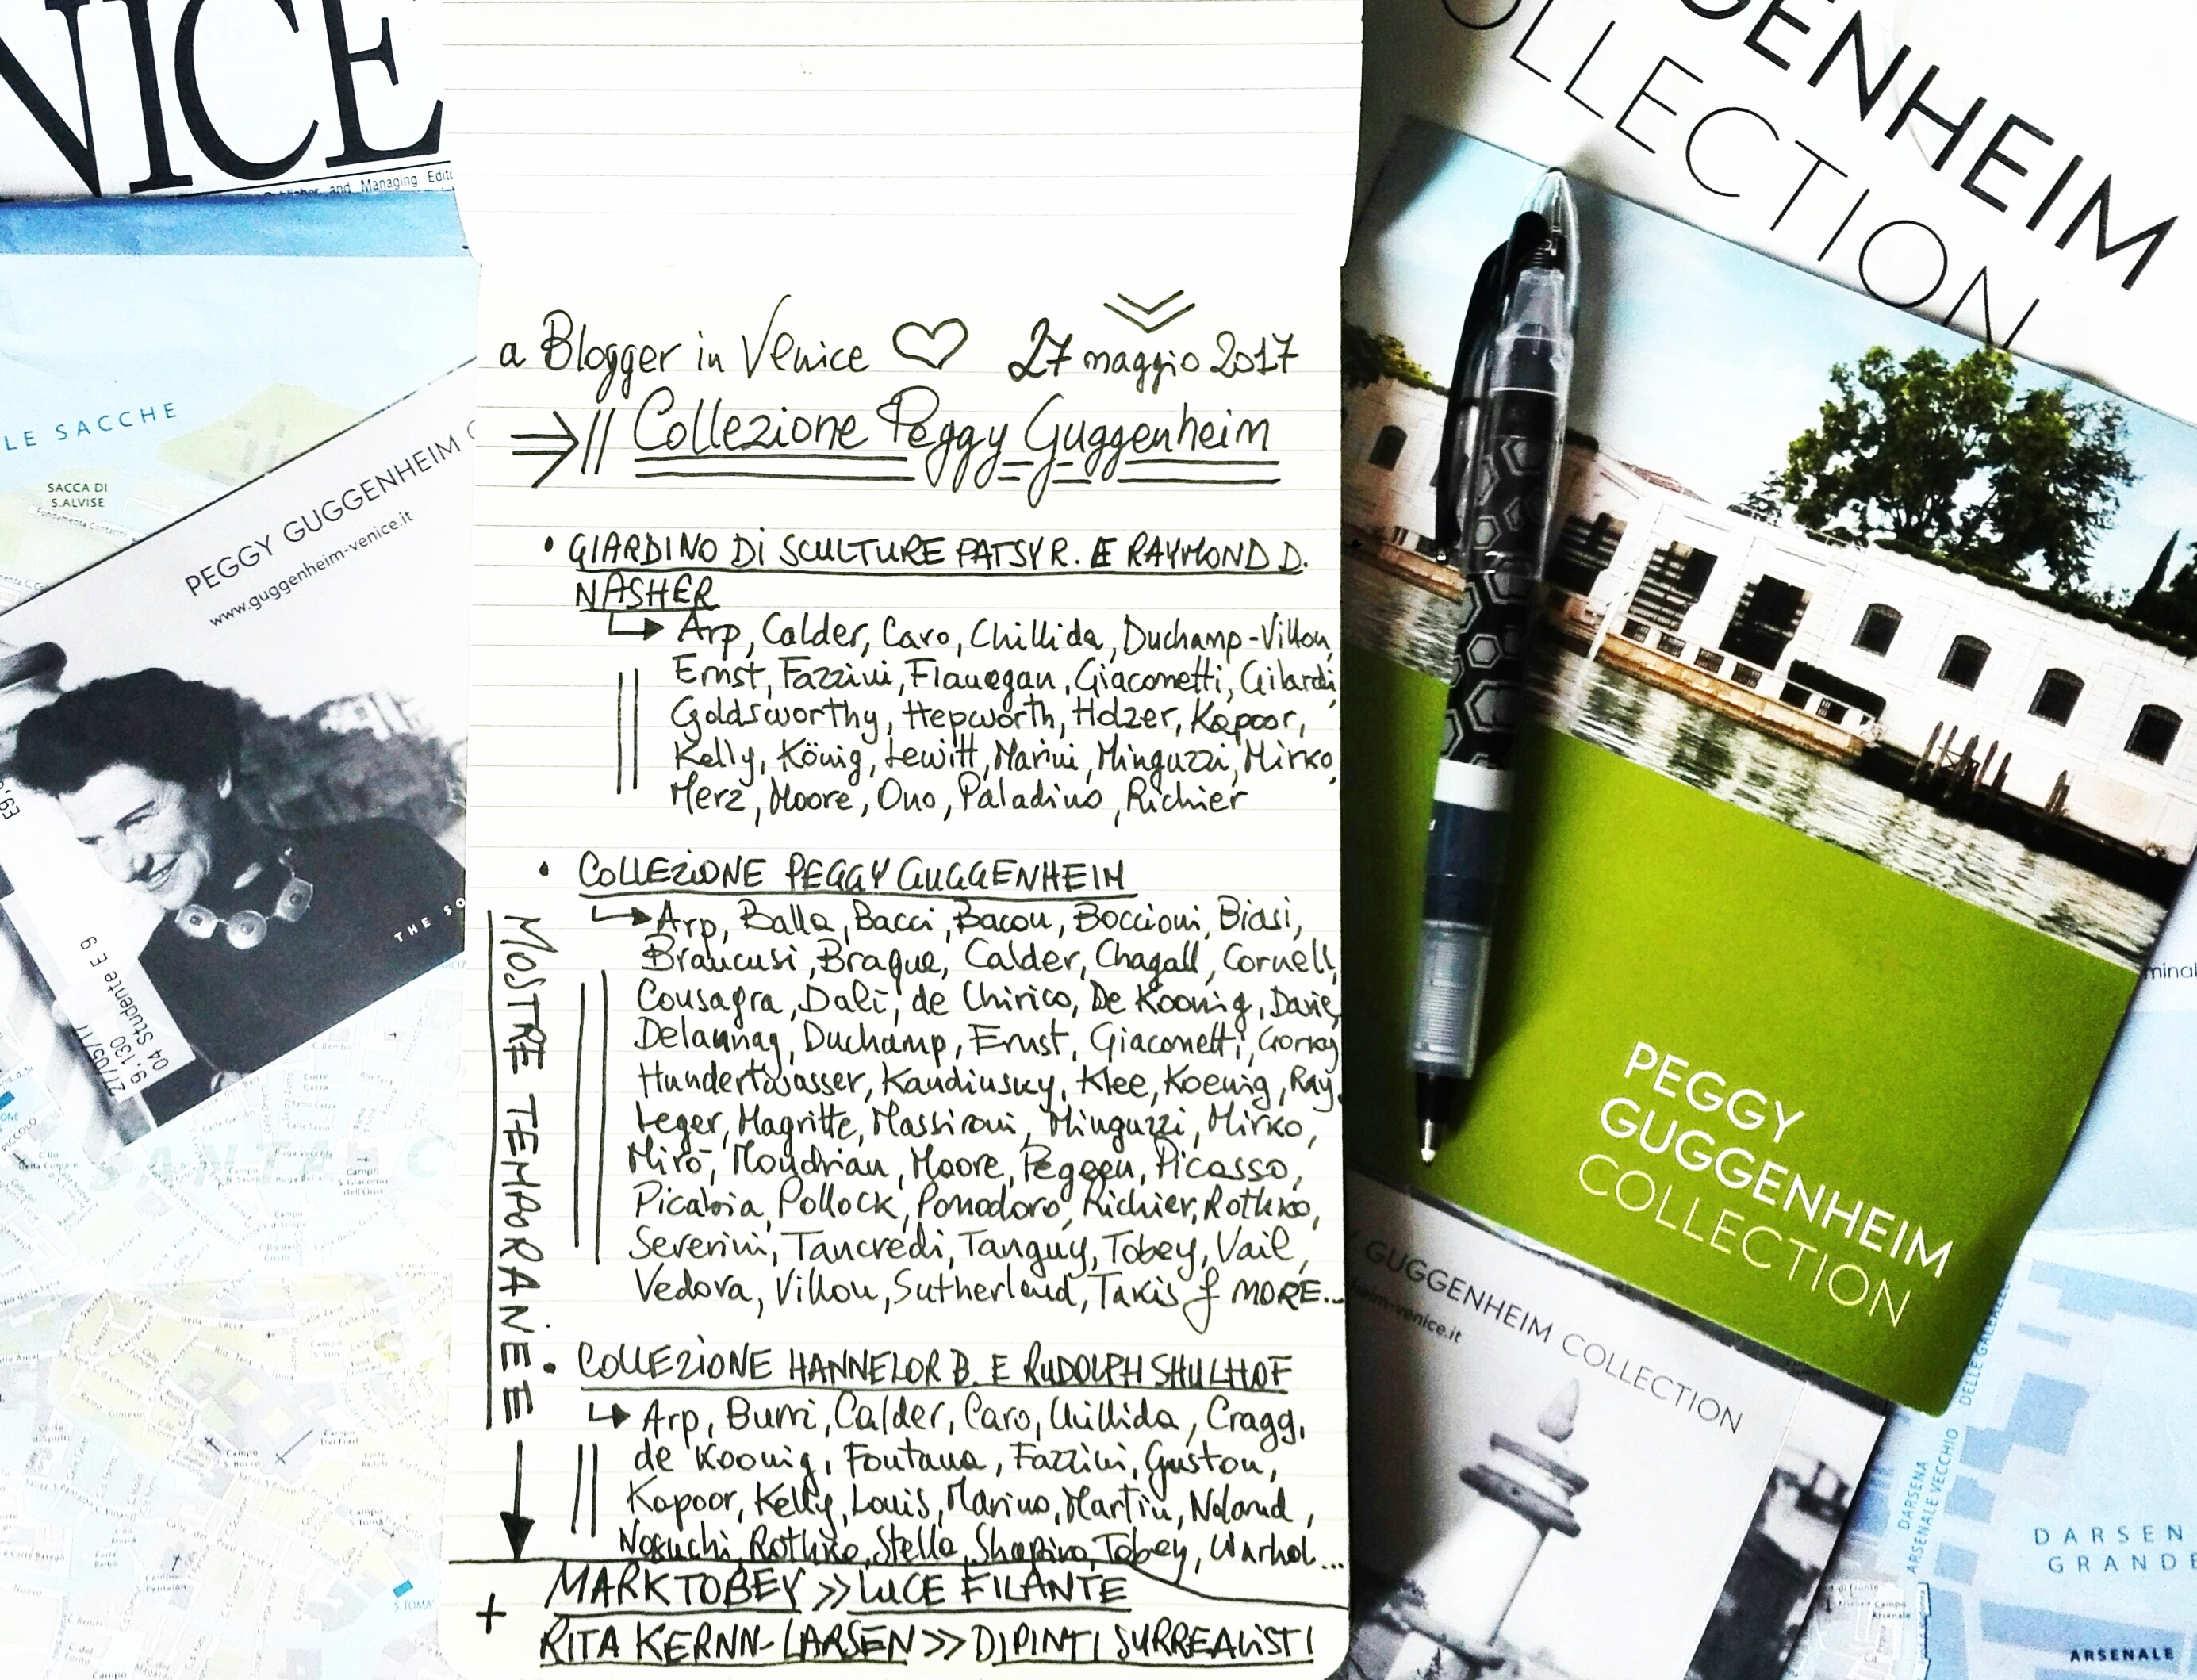 NICE
Publisher and Managing Edit
LE SACCHE
SACCA DI
S.ALVISE
PEGGY GUGGENHEIM C
www.guggenheim-venice.it
THE SO
04 Studente E 9
9, 130
27/05/17
SANTA C
S.TOMA'
a Blogger in Venice ♡ 27 maggio 2017
⇒ // Collezione Peggy Guggenheim
• GIARDINO Di SCULTURE PATSY R. E RAYMOND D.
NASHER
↳ Arp, Calder, Caro, Chillida, Duchamp-Villon,
Ernst, Fazzini, Flanegan, Giacometti, Gilardi,
Goldsworthy, Hepworth, Holzer, Kapoor,
Kelly, König, Lewitt, Marini, Minguzzi, Mirko,
Merz, Moore, Ono, Paladino, Richier
• COLLEZIONE PEGGY GUGGENHEIM
↳ Arp, Balla, Bacci, Bacon, Boccioni, Biasi,
Brancusi, Braque, Calder, Chagall, Cornell,
Consagra, Dalì, de Chirico, De Koonig, Davie,
Delaunay, Duchamp, Ernst, Giacometti, Gorky
Hundertwasser, Kandinsky, Klee, Koenig, Ray,
Leger, Magritte, Massironi, Minguzzi, Mirko,
Mirò, Mondrian, Moore, Pegeen, Picasso,
Picabia, Pollock, Pomodoro, Richier, Rothko,
Severini, Tancredi, Tanguy, Tobey, Vail,
Vedova, Villon, Sutherland, Takis & MORE...
• COLLEZIONE HANNELOR B. E RUDOLPH SHULHOF
↳ Arp, Burri, Calder, Caro, Chillida, Cragg,
de Koonig, Fontana, Fazzini, Guston,
Kapoor, Kelly, Louis, Marino, Martin, Noland,
Noguchi, Rothko, Stella, Shapiro, Tobey, Warhol...
MOSTRE TEMPORANEE
MARK TOBEY >> LUCE FILANTE
+ RITA KERNN-LARSEN >> DIPINTI SURREALISTI
GENHEIM
OLLECTION
PEGGY
GUGGENHEIM
COLLECTION
GUGGENHEIM COLLECTION
heim-venice.it
DELLE GALEAZZE
DARSENA
ARSENALE VECCHIO
DARSEN
GRANDE
ARSENALE